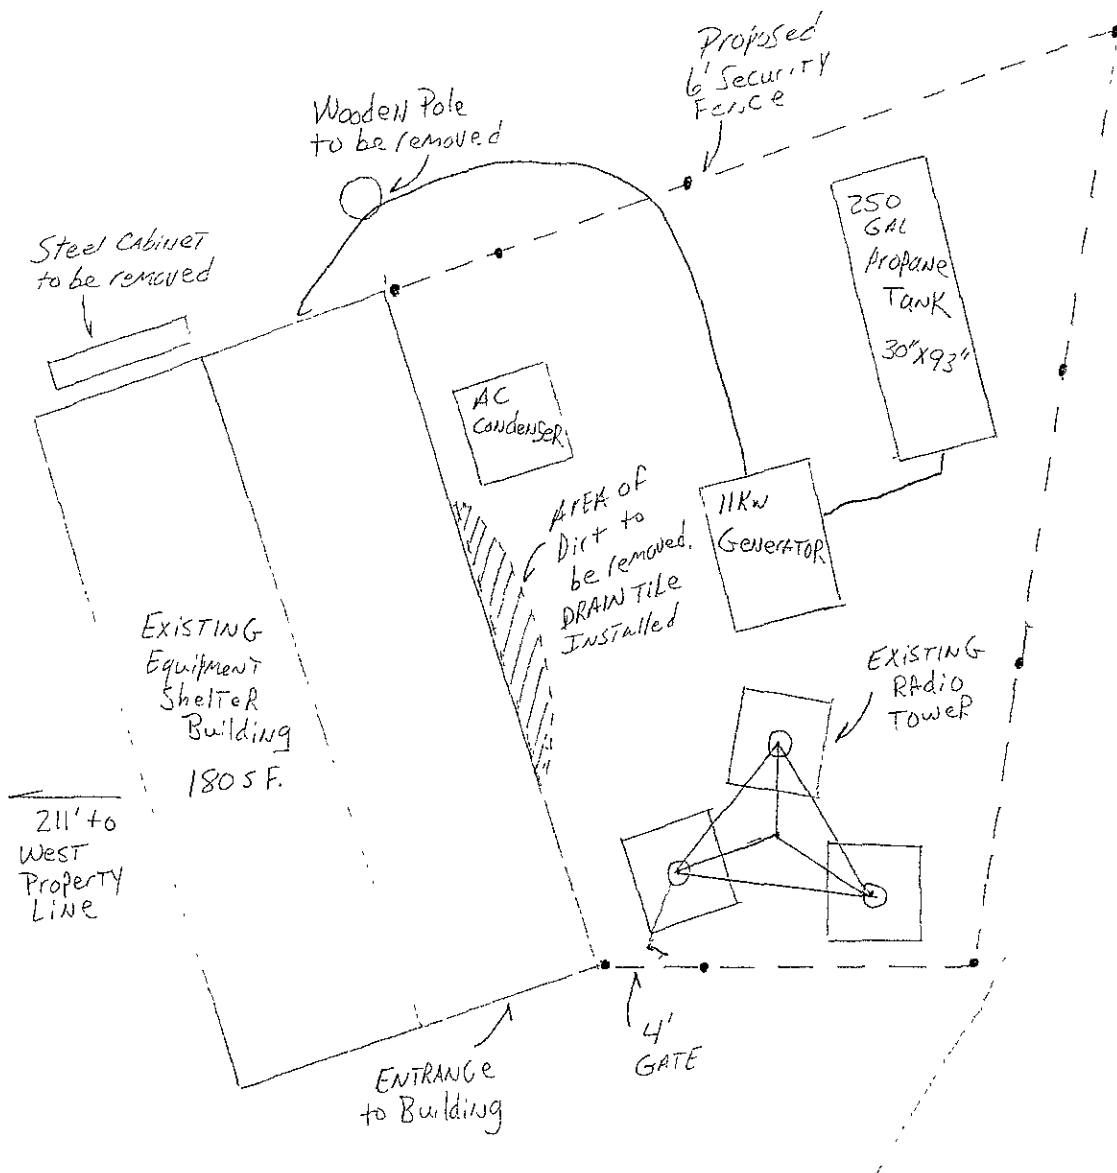 Proposed
6' Security
Fence
Wooden Pole
to be removed
Steel CABiNET
to be removed
250
GAL
Propane
TANK
30"X93"
AC
CondenseR
AREA OF
Dirt to
be removed.
DRAIN TiLE
INSTAlled
11Kw
GENERATOR
EXISTING
Equipment
SheLTeR
Building
180 S F.
EXISTING
RAdio
TOWER
211' to
WEST
PropeRTY
LiNe
4'
GATE
ENTRANCE
to Building